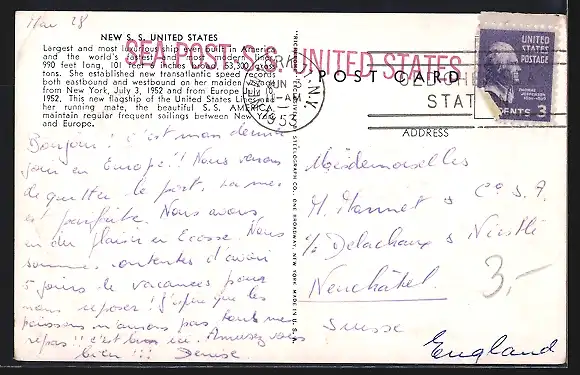 Mar 28
NEW S. S. UNITED STATES
Largest and most luxurious ship ever built in America
and the world's fastest and most modern liner,
990 feet long, 101 feet 6 inches broad, 53,300 gross
tons. She established new transatlantic speed records
both eastbound and westbound on her maiden voyage
from New York, July 3, 1952 and from Europe July
1952. This new flagship of the United States Lines and
her running mate, the beautiful S.S. AMERICA,
maintain regular frequent sailings between New York
and Europe.
SEA POST S.S. UNITED STATES
N.Y.
JUN
-AM
1953
POST CARD
ADDRESS
UNITED
STATES
POSTAGE
THOMAS
JEFFERSON
CENTS 3
Bonjour! c'est mon dernier
jour en Europe!! Nous venons
de quitter le port, la mer
est parfaite. Nous avons
eu du plaisir en Ecosse. Nous
sommes contentes d'avoir
5 jours de vacances pour
nous reposer! J'espère que les
poissons n'aurons pas tous mes
repas!! c'est bon ici. Amusez vous
bien!!! Denise.
Mesdemoiselles
H. Monnet & Cie S.A.
c/o Delachaux & Niestlé
Neuchâtel.
Suisse
3,-
England